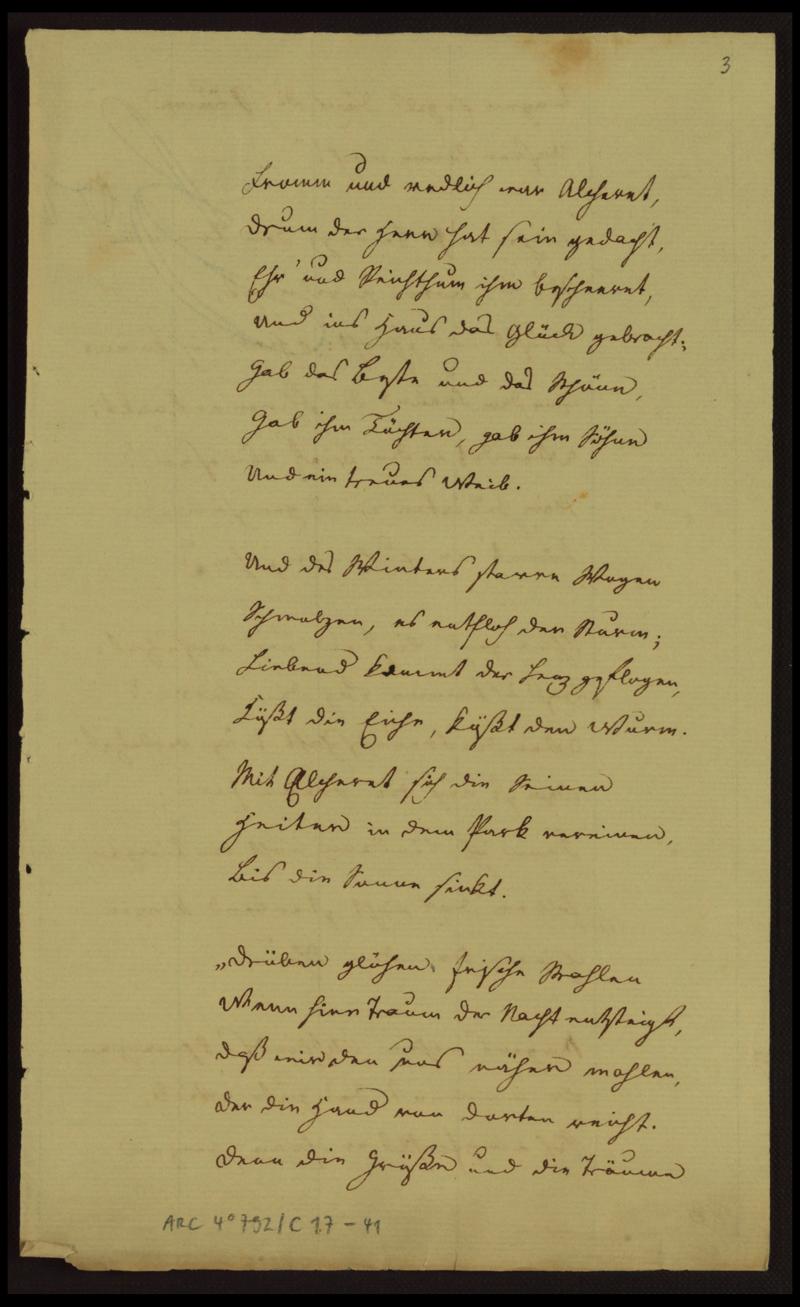 3
Fromm und redlich war Alcheret,
Drum der Herr hat sein gedacht,
Ehr' und Reichthum ihm bescheeret,
Und ins Haus das Glück gebracht;
Gab das Beste und das Schöne,
Gab ihm Töchter, gab ihm Söhne
Und ein treues Weib.
Und des Winters starre Wogen
Schmolzen, es entfloh der Sturm;
Liebend kommt der Lenz geflogen,
Küßt die Eiche, küßt den Wurm.
Mit Alcheret sich die Seinen
Heiter in dem Park vereinen,
Bis die Sonne sinkt.
„Drüben glühen frische Strahlen
Wenn hier Traum der Nacht entsteigt,
Daß wir den uns näher mahlen,
Der die Hand von dorten reicht.
Denn die Grüße und die Träume
ARC 4° 792/C 17-41